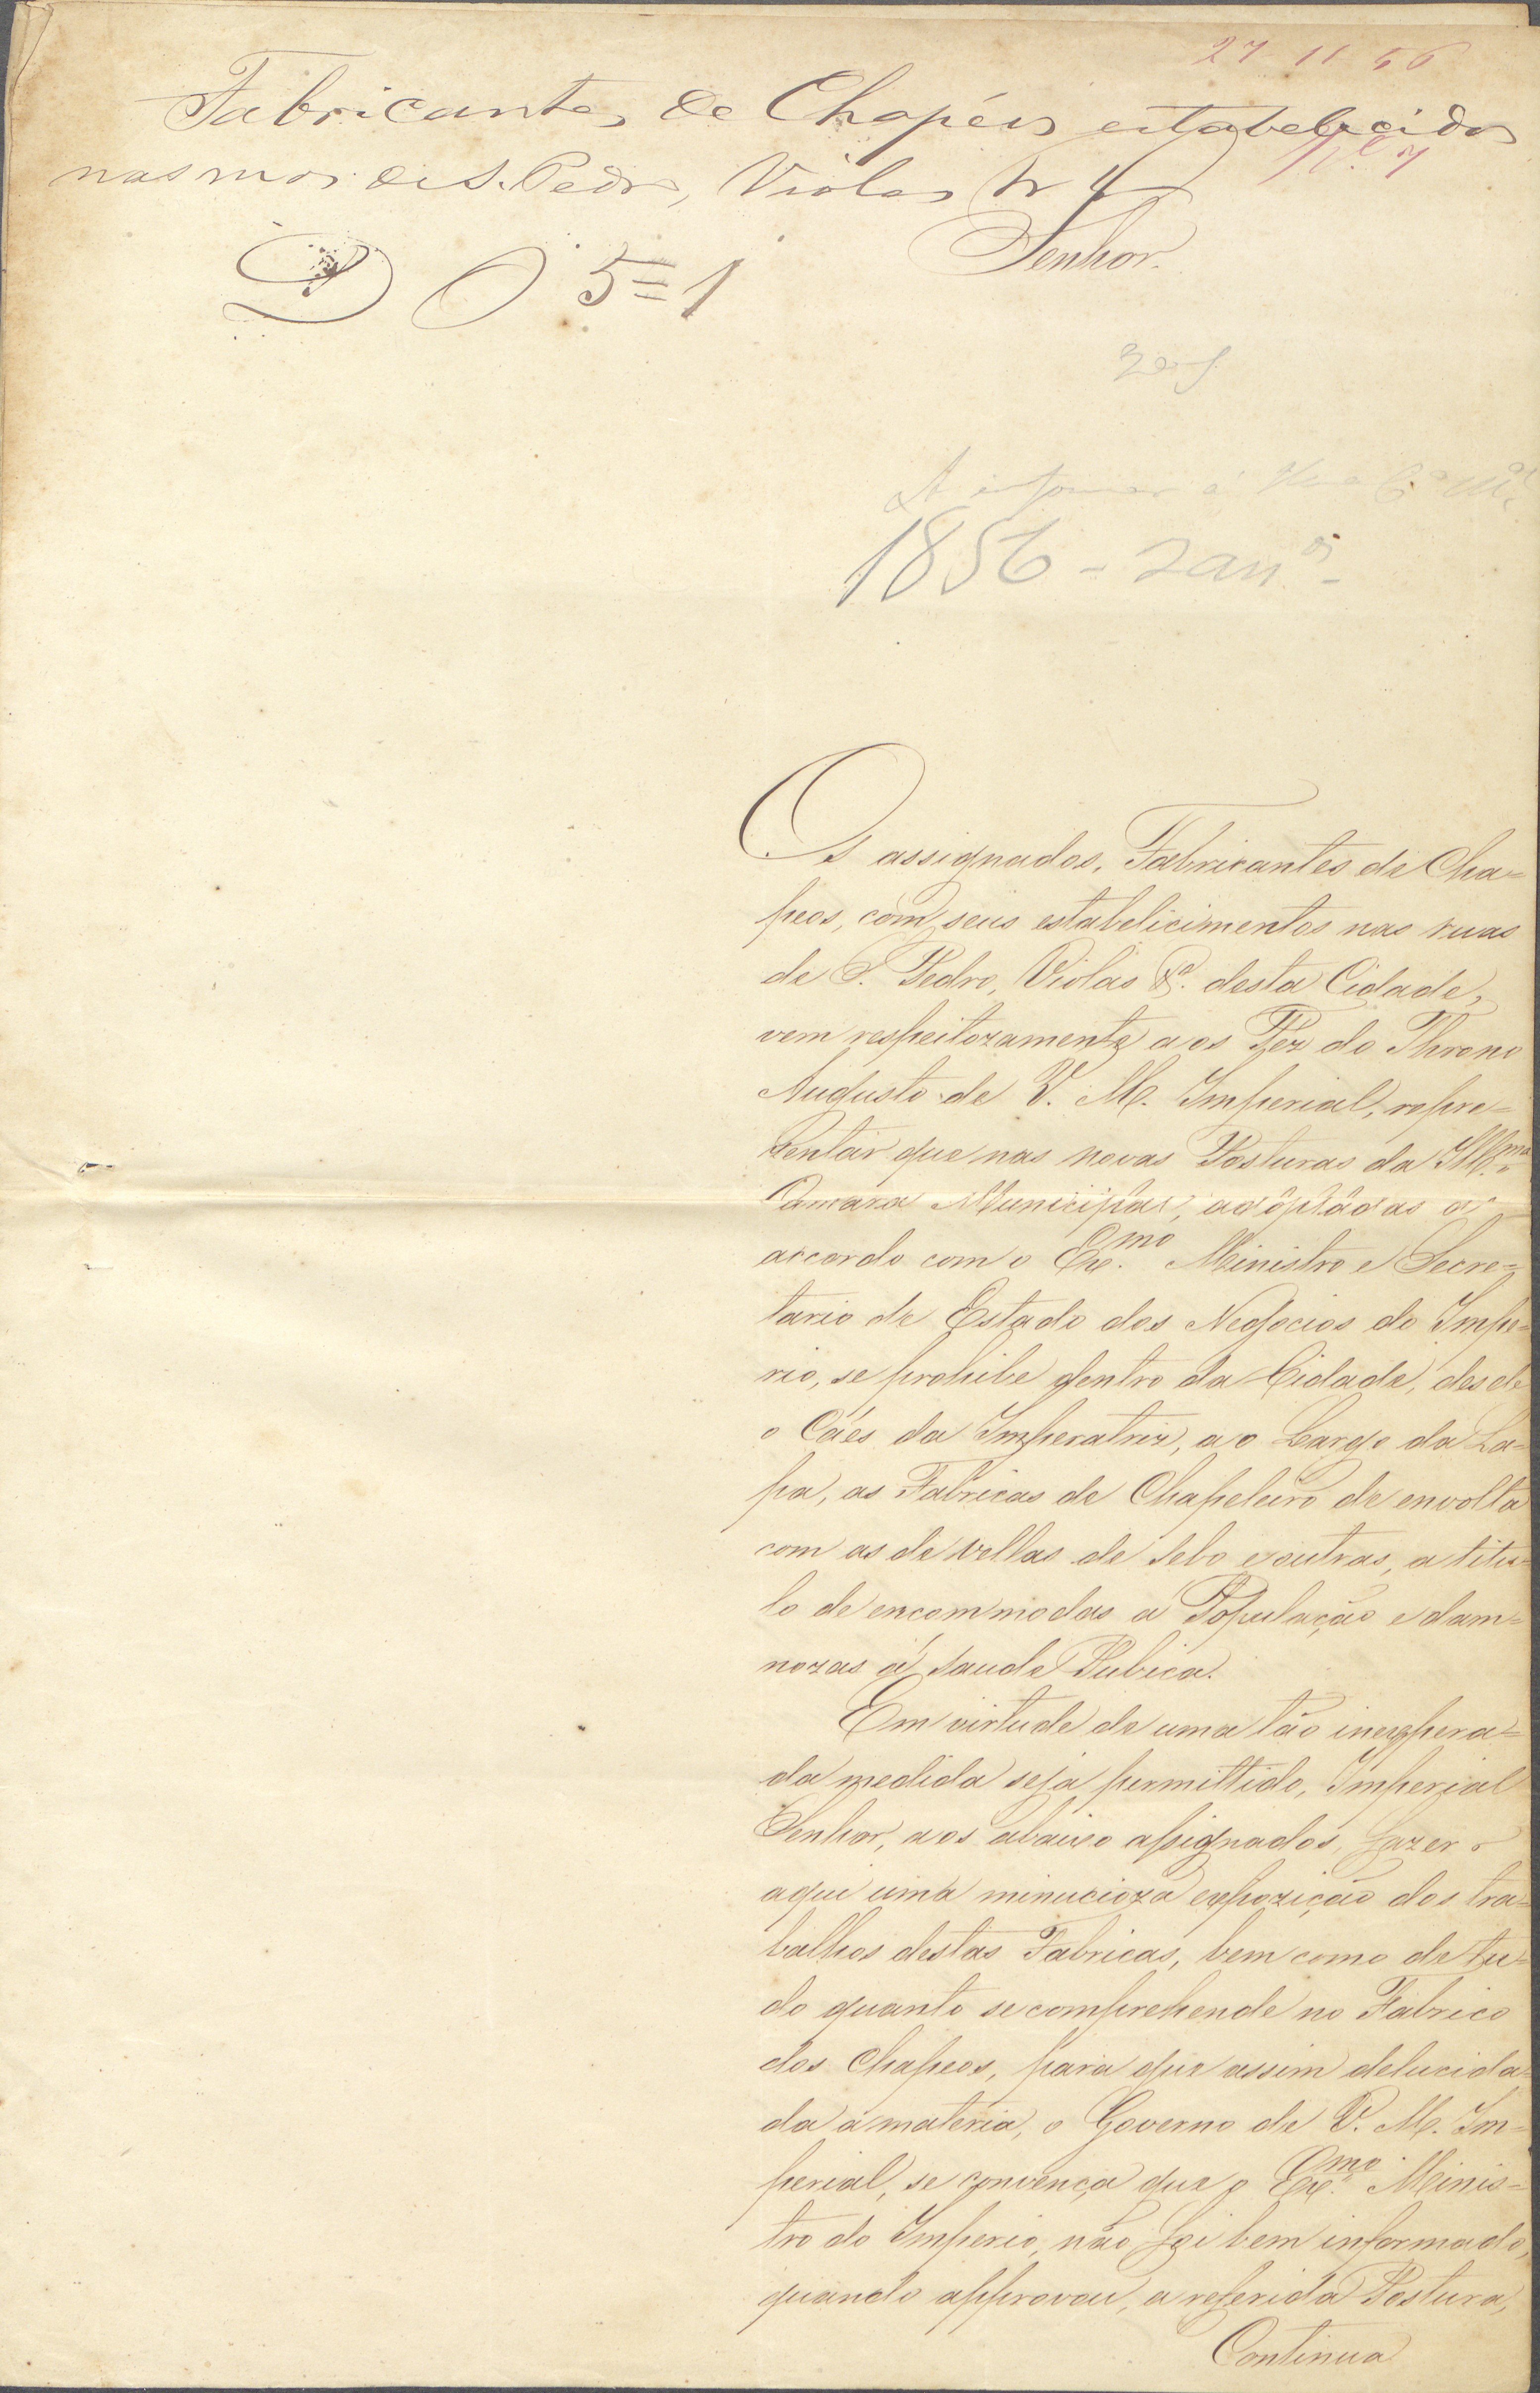 27 11 56
Fabricantes de Chapéus estabelecidos
nas ruas de S. Pedro, Violas
Senhor.
5=1
1856 - Jan.º -
Os assignados, Fabricantes de Cha=
peos, com seus estabelicimentos nas ruas
de S. Pedro, Violas &ª. desta Cidade,
vem respeitozamente aos Pez do Throno
Augusto de V. M. Imperial, repre=
zentar que nas novas Posturas da Ill.ma
Camara Municipal, adoptadas de
accordo com o Ex.mo Ministro e Secre=
tario de Estado dos Negocios do Impe=
rio, se prohibe dentro da Cidade, desde
o Cáes da Imperatriz, ao Largo da La=
pa, as Fabricas de Chapeleiro de envolta
com as de vellas de sebo e outras, a titu=
lo de encommodas á População e dam=
nozas á saude Pubica.
Em virtude de uma tão inexpera=
da medida seja permittido, Imperial
Senhor, aos abaixo assignados, fazer
aqui uma minucioza expozição dos tra=
balhos destas Fabricas, bem como de tu=
do quanto se comprehende no Fabrico
dos Chapeos, para que assim delucida=
da a materia, o Governo de V. M. Im=
perial, se convença que o Ex.mo Minis=
tro do Imperio, não foi bem informado,
quando approvou, a referida Postura,
Continua